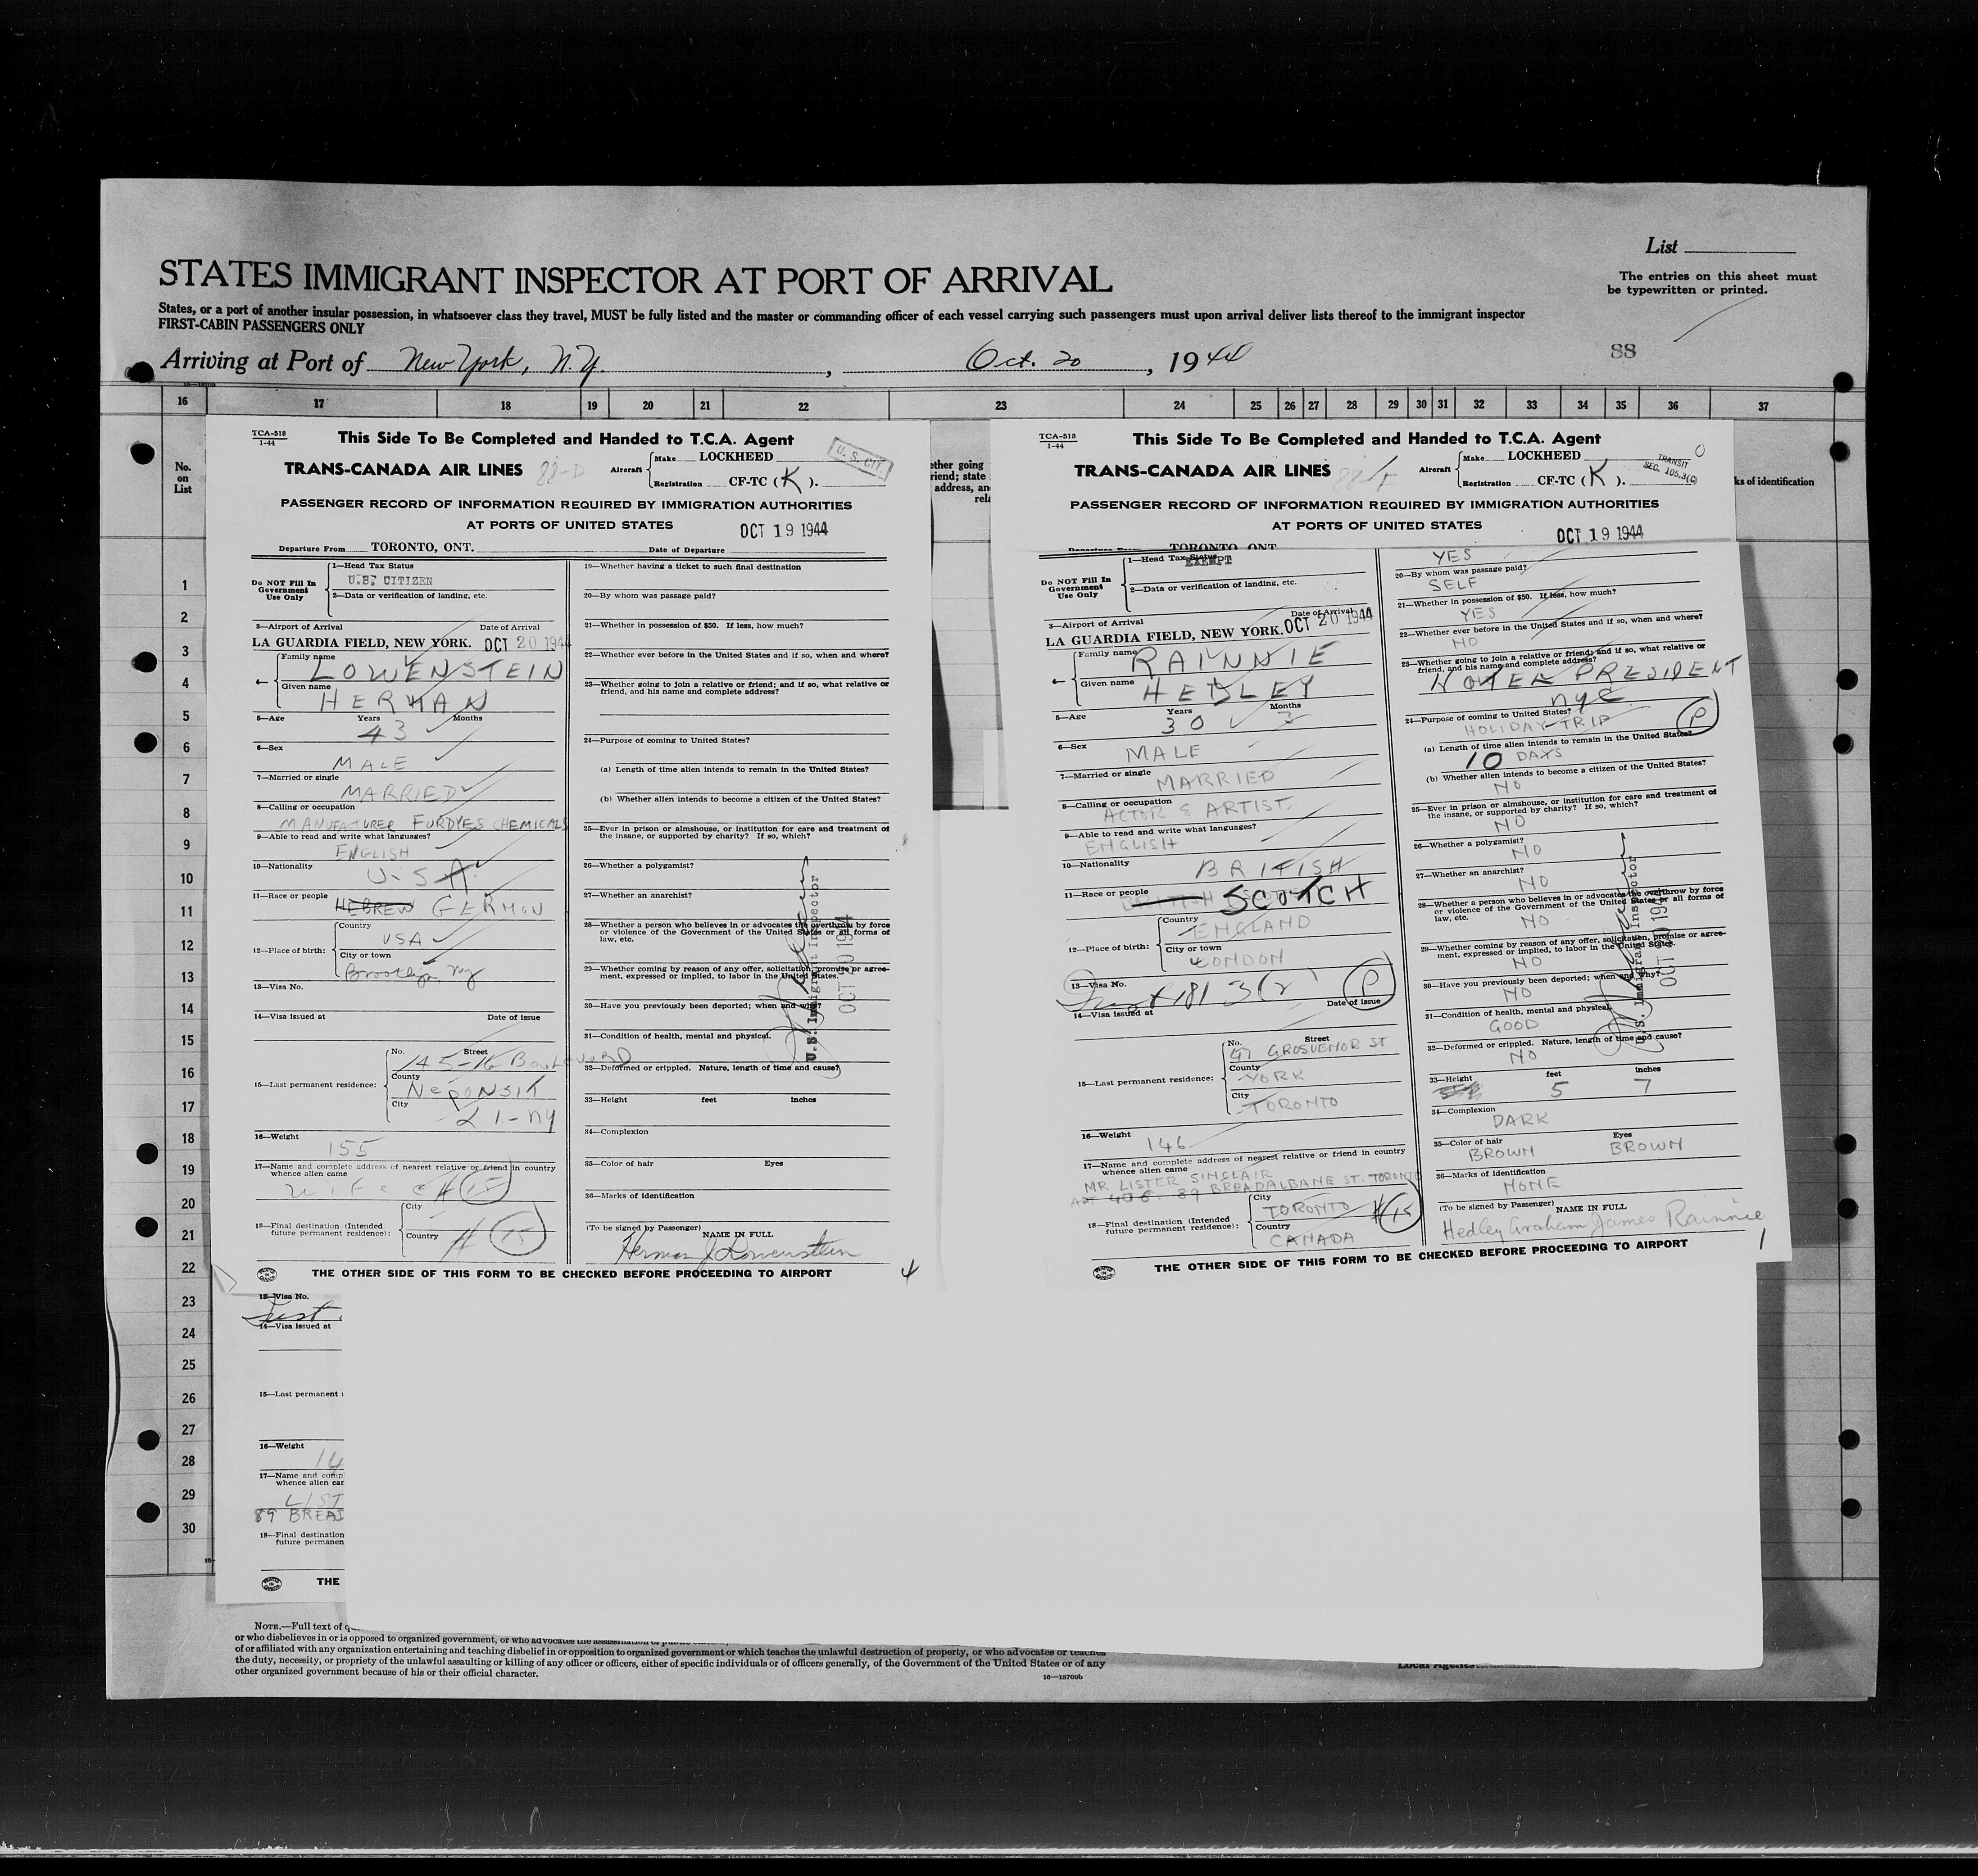 List
STATES IMMIGRANT INSPECTOR AT PORT OF ARRIVAL
The entries on this sheet must
be typewritten or printed.
States, or a port of another insular possession, in whatsoever class they travel, MUST be fully listed and the master or commanding officer of each vessel carrying such passengers must upon arrival deliver lists thereof to the immigrant inspector
FIRST-CABIN PASSENGERS ONLY
Arriving at Port of New York, N.Y., Oct. 20, 1944
88
16 17 18 19 20 21 22 23 24 25 26 27 28 29 30 31 32 33 34 35 36 37
No.
on
List
1
2
3
4
5
6
7
8
9
10
11
12
13
14
15
16
17
18
19
20
21
22
23
24
25
26
27
28
29
30
TCA-518
1-44
This Side To Be Completed and Handed to T.C.A. Agent
U. S. CIT.
TRANS-CANADA AIR LINES 88-D
Aircraft
Make LOCKHEED
Registration CF-TC ( K ).
PASSENGER RECORD OF INFORMATION REQUIRED BY IMMIGRATION AUTHORITIES
AT PORTS OF UNITED STATES
OCT 19 1944
Departure From TORONTO, ONT.
Date of Departure
Do NOT Fill In
Government
Use Only
1—Head Tax Status
U.S. CITIZEN
2—Data or verification of landing, etc.
3—Airport of Arrival Date of Arrival
LA GUARDIA FIELD, NEW YORK. OCT 20 194
4—
Family name
LOWENSTEIN
Given name
HERMAN
5—Age Years Months
43
6—Sex
MALE
7—Married or single
MARRIED
8—Calling or occupation
MANUFATURER FURDYES CHEMICALS
9—Able to read and write what languages?
ENGLISH
10—Nationality
U.S.A.
11—Race or people HEBREW GERMAN
12—Place of birth:
Country
USA
City or town
Brooklyn NY
13—Visa No.
14—Visa issued at Date of issue
15—Last permanent residence:
No. Street
145-16 Boulevard
County
Neponsit
City
L I - NY
16—Weight
155
17—Name and complete address of nearest relative or friend in country
whence alien came
wife # 15
18—Final destination (Intended
future permanent residence):
City
Country
# 15
19—Whether having a ticket to such final destination
20—By whom was passage paid?
21—Whether in possession of $50. If less, how much?
22—Whether ever before in the United States and if so, when and where?
23—Whether going to join a relative or friend; and if so, what relative or
friend, and his name and complete address?
24—Purpose of coming to United States?
(a) Length of time alien intends to remain in the United States?
(b) Whether alien intends to become a citizen of the United States?
25—Ever in prison or almshouse, or institution for care and treatment of
the insane, or supported by charity? If so, which?
26—Whether a polygamist?
27—Whether an anarchist?
28—Whether a person who believes in or advocates the overthrow by force
or violence of the Government of the United States or all forms of
law, etc.
29—Whether coming by reason of any offer, solicitation, promise or agree-
ment, expressed or implied, to labor in the United States.
30—Have you previously been deported; when and why?
31—Condition of health, mental and physical.
32—Deformed or crippled. Nature, length of time and cause?
33—Height feet inches
34—Complexion
35—Color of hair Eyes
36—Marks of identification
(To be signed by Passenger) NAME IN FULL
Herman J Lowenstein
U.S. Immigrant Inspector
OCT 20 1944
THE OTHER SIDE OF THIS FORM TO BE CHECKED BEFORE PROCEEDING TO AIRPORT
4
ether going
riend; state
address, an
rela
TCA-518
1-44
This Side To Be Completed and Handed to T.C.A. Agent
TRANS-CANADA AIR LINES
Aircraft
Make LOCKHEED
Registration CF-TC ( K ).
TRANSIT
SEC. 105.3(c)
ks of identification
PASSENGER RECORD OF INFORMATION REQUIRED BY IMMIGRATION AUTHORITIES
AT PORTS OF UNITED STATES
OCT 19 1944
TORONTO, ONT
Do NOT Fill In
Government
Use Only
1—Head Tax Status
EXEMPT
2—Data or verification of landing, etc.
3—Airport of Arrival Date of Arrival
LA GUARDIA FIELD, NEW YORK. OCT 20 1944
4—
Family name
RAINNIE
Given name
HEDLEY
5—Age Years Months
30 3
6—Sex
MALE
7—Married or single
MARRIED
8—Calling or occupation
ACTOR & ARTIST.
9—Able to read and write what languages?
ENGLISH
10—Nationality
BRITISH
11—Race or people SCOTCH
12—Place of birth:
Country
ENGLAND
City or town
LONDON
13—Visa No.
P
14—Visa issued at Date of issue
15—Last permanent residence:
No. Street
47 GROSVENOR ST
County
YORK
City
TORONTO
16—Weight
146
17—Name and complete address of nearest relative or friend in country
whence alien came
MR LISTER SINCLAIR
APT 406 89 BREADALBANE ST. TORONTO
18—Final destination (Intended
future permanent residence):
City
TORONTO
Country
CANADA
# 15
YES
20—By whom was passage paid?
SELF
21—Whether in possession of $50. If less, how much?
YES
22—Whether ever before in the United States and if so, when and where?
NO
23—Whether going to join a relative or friend; and if so, what relative or
friend, and his name and complete address?
HOTEL PRESIDENT
NYC
24—Purpose of coming to United States?
HOLIDAY TRIP
P
(a) Length of time alien intends to remain in the United States?
10 DAYS
(b) Whether alien intends to become a citizen of the United States?
NO
25—Ever in prison or almshouse, or institution for care and treatment of
the insane, or supported by charity? If so, which?
NO
26—Whether a polygamist?
NO
27—Whether an anarchist?
NO
28—Whether a person who believes in or advocates the overthrow by force
or violence of the Government of the United States or all forms of
law, etc.
NO
29—Whether coming by reason of any offer, solicitation, promise or agree-
ment, expressed or implied, to labor in the United States.
NO
30—Have you previously been deported; when and why?
NO
31—Condition of health, mental and physical.
GOOD
32—Deformed or crippled. Nature, length of time and cause?
NO
33—Height feet inches
5 7
34—Complexion
DARK
35—Color of hair Eyes
BROWN BROWN
36—Marks of identification
NONE
(To be signed by Passenger) NAME IN FULL
Hedley Graham James Rainnie
U.S. Immigrant Inspector
OCT 20 194
THE OTHER SIDE OF THIS FORM TO BE CHECKED BEFORE PROCEEDING TO AIRPORT
1
13—Visa No.
14—Visa issued at
15—Last permanent
16—Weight
14
17—Name and compl
whence alien car
LIST
89 BREAD
18—Final destination
future permanen
THE
NOTE.—Full text of q
or who disbelieves in or is opposed to organized government, or who advocates the assassination of public
of or affiliated with any organization entertaining and teaching disbelief in or opposition to organized government or which teaches the unlawful destruction of property, or who advocates or teaches
the duty, necessity, or propriety of the unlawful assaulting or killing of any officer or officers, either of specific individuals or of officers generally, of the Government of the United States or of any
other organized government because of his or their official character.
16—18709b
Local Agents